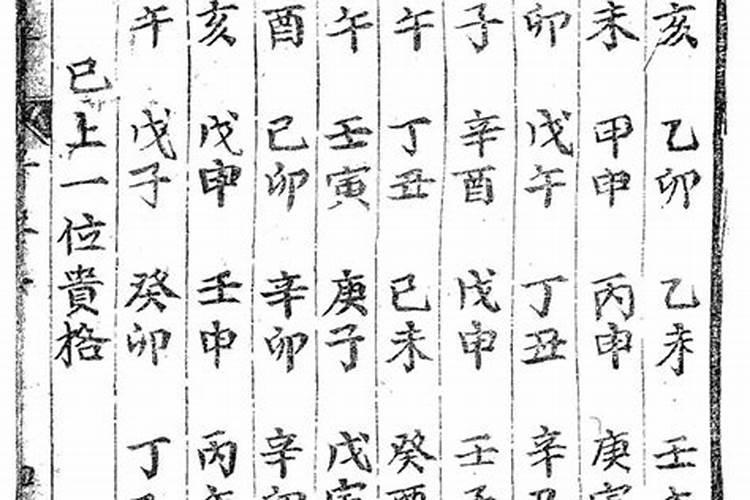 亥 乙卯 乙未 壬
未 甲申 丙申 庚寅
卯 戊午 丁丑 辛
子 辛酉 戊申 壬子
午 丁丑 己未 癸酉
午 壬寅 庚子 戊寅
酉 己卯 辛卯 辛卯
亥 戊申 壬申 丙
午 戊子 癸卯 丁
已上一位貴格